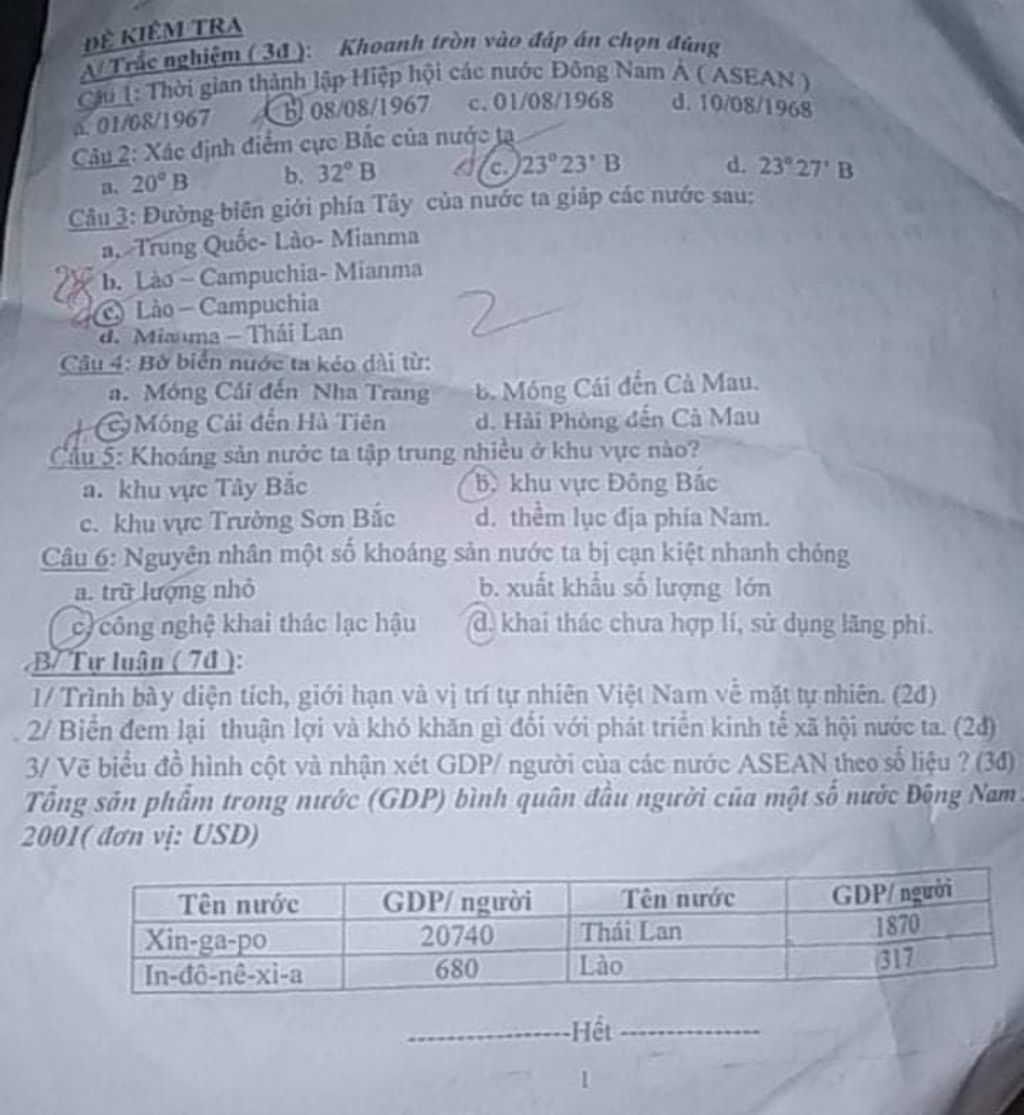 ĐỀ KIỂM TRA
A/ Trắc nghiệm ( 3đ ): Khoanh tròn vào đáp án chọn đúng
Câu 1: Thời gian thành lập Hiệp hội các nước Đông Nam Á ( ASEAN )
a. 01/08/1967 b) 08/08/1967 c. 01/08/1968 d. 10/08/1968
Câu 2: Xác định điểm cực Bắc của nước ta
a. 20° B b. 32° B c. 23°23' B d. 23°27' B
Câu 3: Đường biên giới phía Tây của nước ta giáp các nước sau:
a. Trung Quốc- Lào- Mianma
b. Lào – Campuchia- Mianma
c. Lào – Campuchia
d. Mianma – Thái Lan
2
Câu 4: Bờ biển nước ta kéo dài từ:
a. Móng Cái đến Nha Trang b. Móng Cái đến Cà Mau.
c. Móng Cái đến Hà Tiên d. Hải Phòng đến Cà Mau
Câu 5: Khoáng sản nước ta tập trung nhiều ở khu vực nào?
a. khu vực Tây Bắc b. khu vực Đông Bắc
c. khu vực Trường Sơn Bắc d. thềm lục địa phía Nam.
Câu 6: Nguyên nhân một số khoáng sản nước ta bị cạn kiệt nhanh chóng
a. trữ lượng nhỏ b. xuất khẩu số lượng lớn
c) công nghệ khai thác lạc hậu d. khai thác chưa hợp lí, sử dụng lãng phí.
B/ Tự luận ( 7đ ):
1/ Trình bày diện tích, giới hạn và vị trí tự nhiên Việt Nam về mặt tự nhiên. (2đ)
2/ Biển đem lại thuận lợi và khó khăn gì đối với phát triển kinh tế xã hội nước ta. (2đ)
3/ Vẽ biểu đồ hình cột và nhận xét GDP/ người của các nước ASEAN theo số liệu ? (3đ)
Tổng sản phẩm trong nước (GDP) bình quân đầu người của một số nước Đông Nam
2001( đơn vị: USD)
Tên nước GDP/ người Tên nước GDP/ người
Xin-ga-po 20740 Thái Lan 1870
In-đô-nê-xi-a 680 Lào 317
-----------------Hết ---------------
1